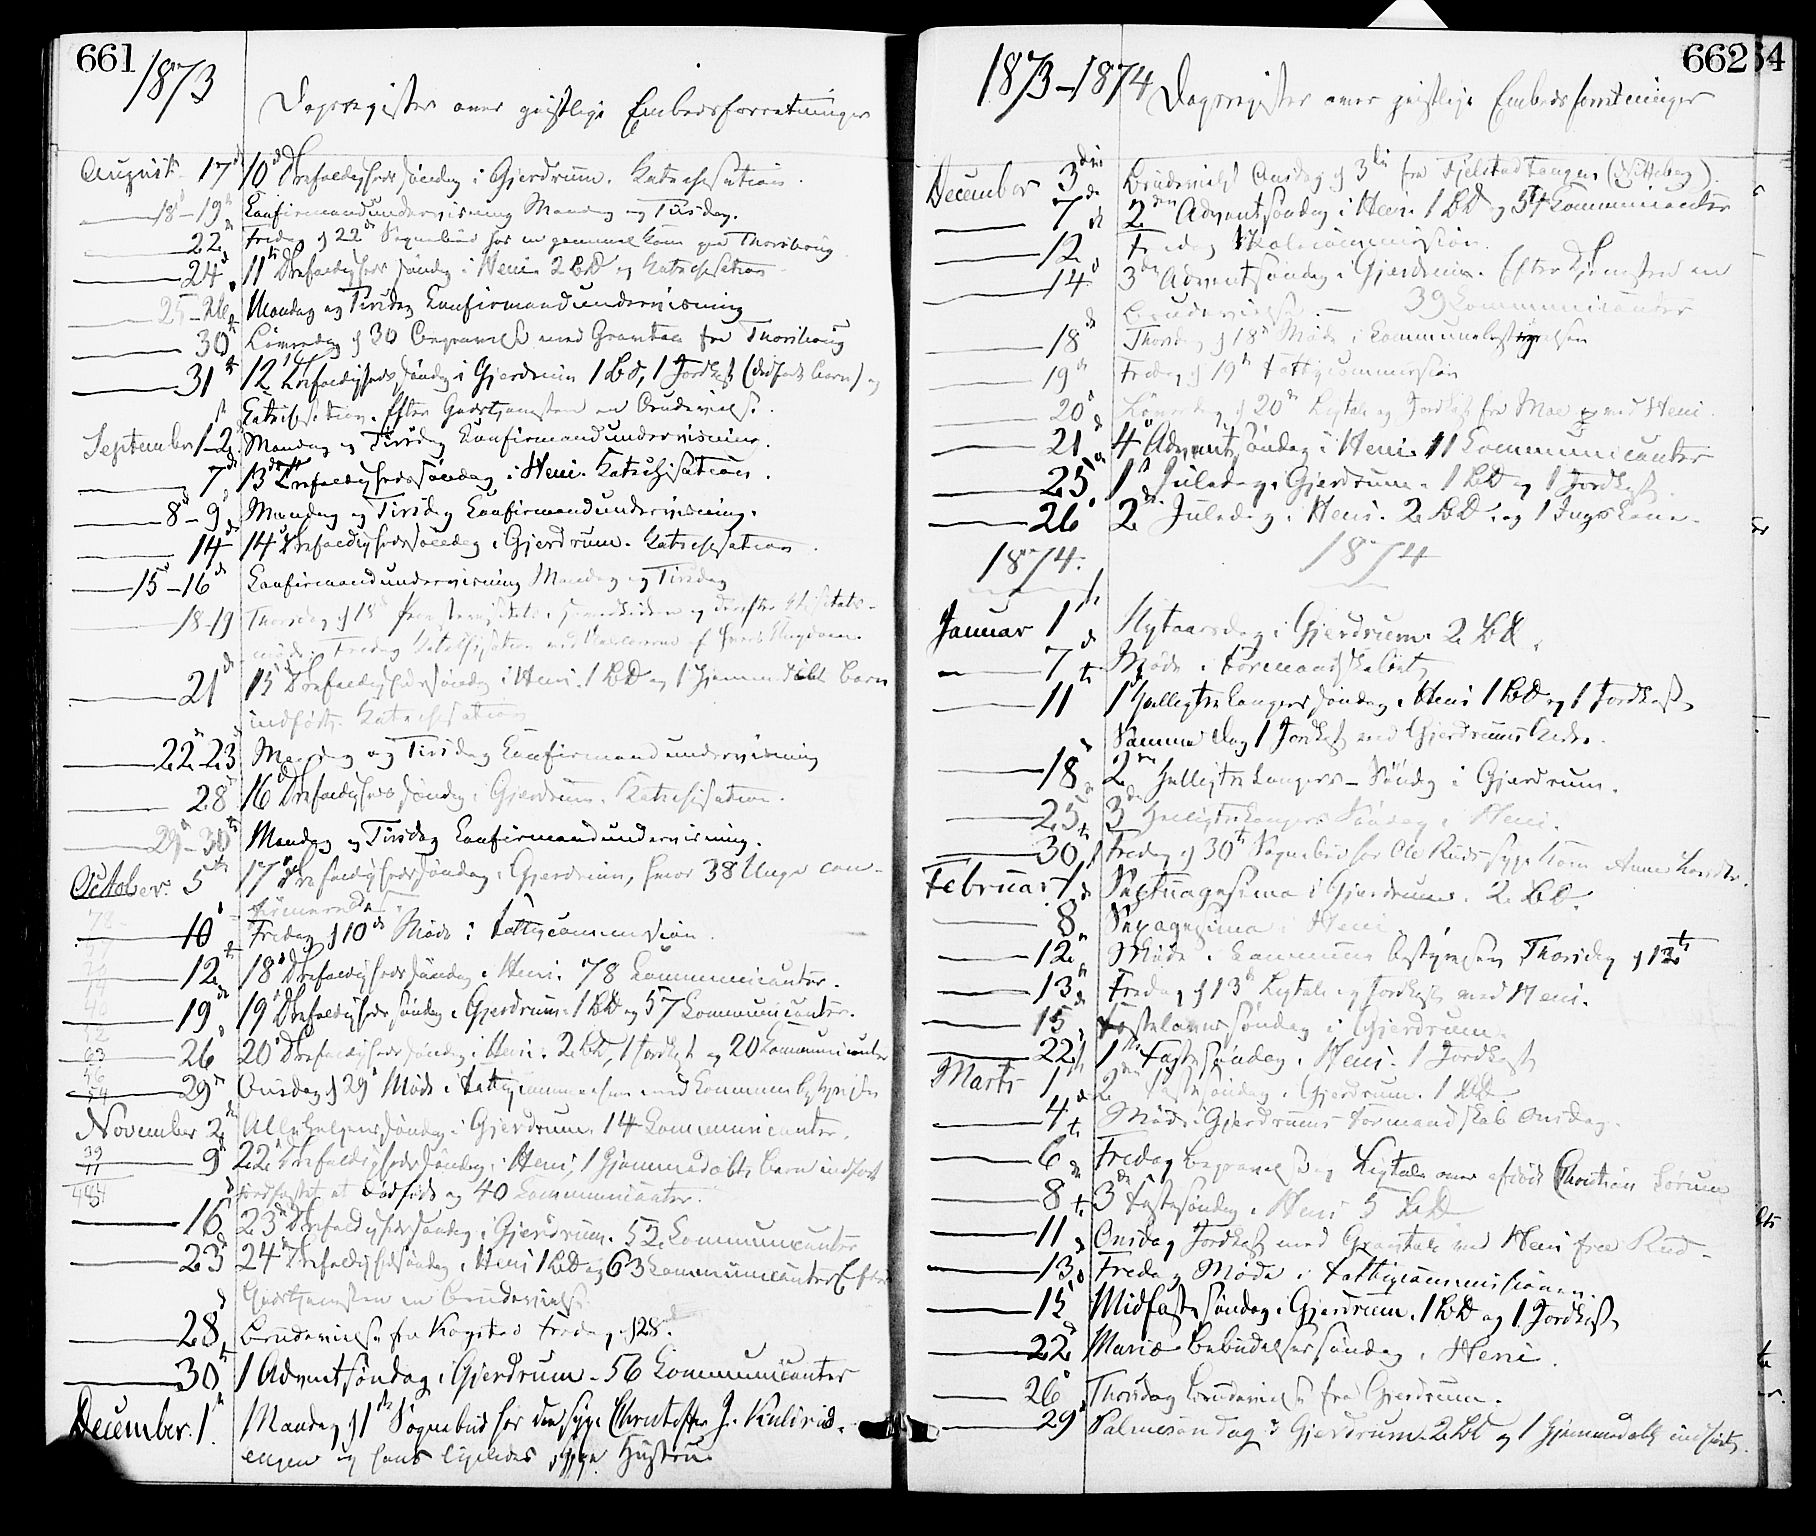 661
1873
Dagsregister over geistlige Embedsforretninger
August 17de 10de Trefoldigheds Søndag i Gjerdrum. Katechisation.
18de–19de Confirmandundervisning Mandag og Tirsdag.
22de Fredag d 22de Sognebud hos en gammel Kone paa Thorshoug
24de 11te Trefoldigheds Søndag i Heni. 2 BD og Katechisation
25–26de Mandag og Tirsdag Confirmandundervisning
30te Løverdag d 30 Begravelse med Gravtale fra Thorshoug
31te 12te Trefoldigheds Søndag i Gjerdrum 1 BD, 1 Jordkast (dødfødt Barn) og
Katechisation. Efter Gudstjenesten en Brudevielse.
September 1–2den Mandag og Tirsdag Confirmandundervisning.
7de 13de Trefoldighedssøndag i Heni. Katechisation.
8de–9de Mandag og Tirsdag Confirmandundervisning.
14de 14de Trefoldighedssøndag i Gjerdrum. Katechisation.
15de–16de Confirmandundervisning Mandag og Tirsdag
18–19 Thorsdag d 18de
Fredag Katechisation med
21de 15de Trefoldighedssøndag i Heni. 1 BD og 1 hjemmedøbt Barn
indført. Katechisation
22–23de Mandag og Tirsdag Confirmandundervisning
28de 16de Trefoldigheds Søndag i Gjerdrum. Katechisation.
29de–30te Mandag og Tirsdag Confirmandundervisning.
October 5te 17de Trefoldighedssøndag i Gjerdrum, hvor 38 Unge con-
firmeredes.
10de Fredag d 10de Møde i Fattigcommission
12te 18de Trefoldigheds Søndag i Heni. 78 Communicanter.
19de 19de Trefoldigheds Søndag i Gjerdrum. 1 BD og 57 Communicanter.
26de 20de Trefoldigheds Søndag i Heni. 2 BD, 1 Jordkast og 20 Communicanter
29de Onsdag d 29de Møde i Fattigcommissionen med Communebestyrelsen
November 2den Allehelgens Søndag i Gjerdrum. 14 Communicanter.
9de 22de Trefoldigheds Søndag i Heni, 1 hjemmedøbt Barn indført
Jordfæstet et Dødfødt og 40 Communicanter.
484
16de 23de Trefoldigheds Søndag i Gjerdrum. 52 Communicanter
23de 24de Trefoldighedssøndag i Heni 1 BD og 63 Communicanter Efter
Gudstjenesten en Brudevielse.
28de Brudevielse fra Kogstad Fredag d 28de.
30te 1 Adventsøndag i Gjerdrum – 56 Communicanter
December 1ste Mandag d 1ste Sognebud hos den syge Christoffer J.
engen og hans ligeledes syge Hustru.
662
1873–1874
Dagsregister over geistlige Embedsforretninger
December 3die Brudevielse Onsdag d 3die fra Fjelstadtangen
7de 2den Adventsøndag i Heni. 1 BD og 54 Communicanter
12te Fredag Skolecommission.
14de 3die Adventsøndag i Gjerdrum. Efter Tjenesten en
Brudevielse. – 39 Communicanter
18de Thorsdag d 18de Møde i Communebestyrelsen
19de Fredag d 19de Fattigcommission
20de Løverdag d 20de Ligtale og Jordkast fra Moe ved Heni.
21de 4de Adventsøndag i Heni. 11 Communicanter
25de 1ste Juledag i Gjerdrum. 1 BD og 1 Jordkast.
26de 2den Juledag i Heni. 2 BD. og 1
1874. 1874
Januar 1ste Nytaarsdag i Gjerdrum. 2 BD.
7de Møde i Formandskabet
11te 1ste Helligtrekongers Søndag i Heni 1 BD og 1 Jordkast
Samme Dag 1 Jordkast ved Gjerdrums Kirke.
18de 2den Helligtrekongers – Søndag i Gjerdrum.
25de 3die Helligtrekongers Søndag i Heni.
30te Fredag d 30te Sognebud hos Ole Ruds syge Kone Anne
Februar 1ste Septuagesima i Gjerdrum. 2 BD.
8de Sexagesima i Heni
12te Møde i Communebestyrelsen Thorsdag d 12te
13de Fredag d 13de Ligtale og Jordkast ved Heni.
15de Fastelavnssøndag i Gjerdrum.
22de 1ste Fastesøndag i Heni. 1 Jordkast
Marts 1ste 2den Fastesøndag i Gjerdrum. 1 BD.
4de Møde i Gjerdrums Formandskab Onsdag.
6te Fredag Begravelse og Ligtale over afdøde Christian Sørum
8de 3die Fastesøndag i Heni 5 BD
11te Onsdag Jordkast med Gravtale ved Heni fra Rud
13de Fredag Møde i Fattigcommissionen.
15de Midfastesøndag i Gjerdrum. 1 BD og 1 Jordkast
22de Mariæ Bebudelsessøndag i Heni.
26de Thorsdag Brudevielse fra Gjerdrum.
29de Palmesøndag i Gjerdrum. 2 BD og 1 Hjemmedøbt indført.